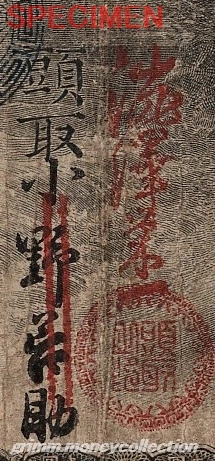 SPECIMEN
澁澤榮一
頭取小野善助
grimm.moneycollection